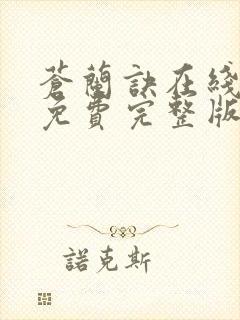 蒼蘭訣在綫
免費完整版
諾克斯